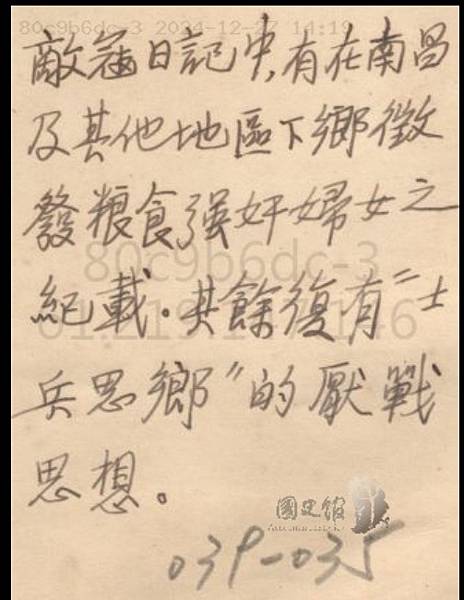 80c9b6dc-3 2024-12-27 14:19
敵寇日記中,有在南昌
及其他地區下鄉徵
發粮食强奸婦女之
80c9b6dc-3
紀載。其餘復有“士
兵思鄉”的厭戰
思想。
國史館
039-035